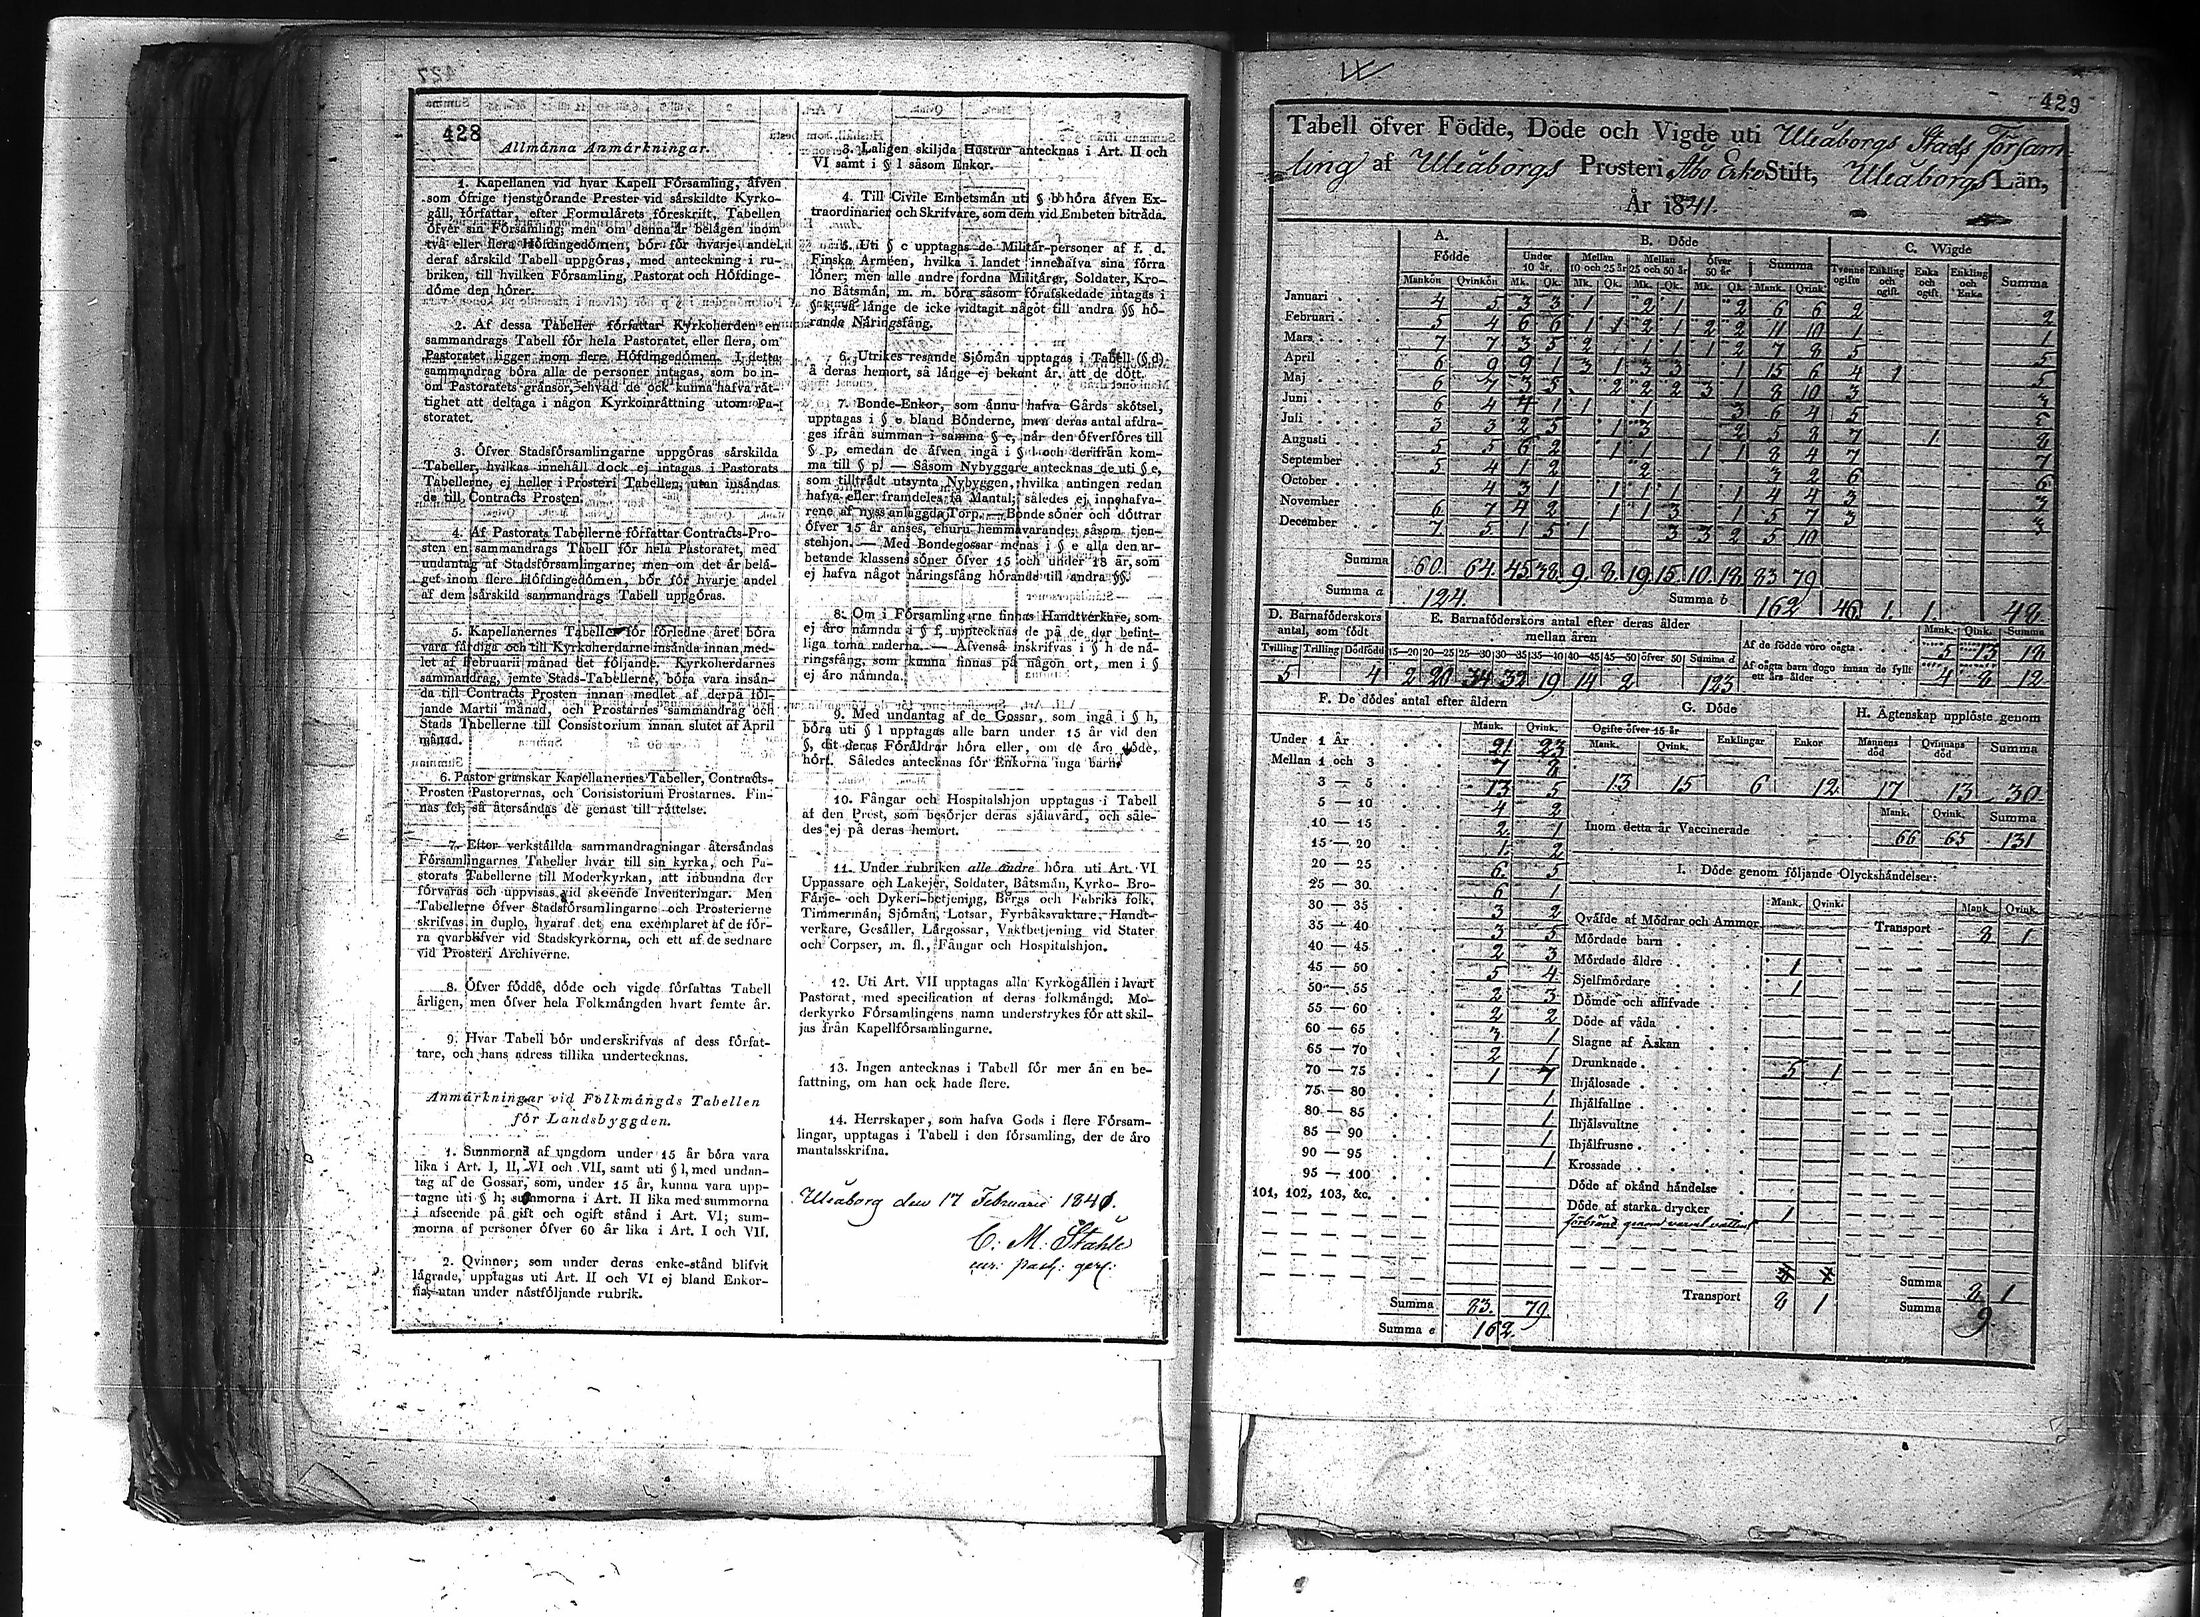 428
Allmänna Anmärkningar.
1. Kapellanen vid hvar Kapell Församling, äfven
som öfrige tjenstgörande Prester vid särskildte Kyrko-
gäll, författar, efter Formulärets föreskrift, Tabellen
öfver sin Församling; men om denna är belägen inom
två eller flera Höfdingedömen, bör för hvarje andel
deraf särskild Tabell uppgöras, med anteckning i ru-
briken, till hvilken Församling, Pastorat och Höfdinge-
döme den hörer.
2. Af dessa Tabeller författar Kyrkoherden en
sammandrags Tabell för hela Pastoratet, eller flera, om
Pastoratet ligger inom flere Höfdingedömen. I detta
sammandrag böra alla de personer intagas, som bo in-
om Pastoratets gränsor, ehvad de ock kunna hafva rät-
tighet att deltaga i någon Kyrkoinrättning utom Pa-
storatet.
3. Öfver Stadsförsamlingarne uppgöras särskilda
Tabeller, hvilkas innehåll dock ej intagas i Pastorats
Tabellerne, ej heller i Prosteri Tabellen, utan insändas
de till Contracts Prosten.
4. Af Pastorats Tabellerne författar Contracts-Pro-
sten en sammandrags Tabell för hela Pastoratet, med
undantag af Stadsförsamlingarne; men om det är belä-
get inom flere Höfdingedömen, bör för hvarje andel
af dem särskild sammandrags Tabell uppgöras.
5. Kapellanernes Tabeller för förledne året böra
vara färdiga och till Kyrkoherdarne insända innan med-
let af Februarii månad det följande. Kyrkoherdarnes
sammandrag, jemte Stads-Tabellerne, böra vara insän-
da till Contracts Prosten innan medlet af derpå föl-
jande Martii månad, och Prostarnes sammandrag och
Stads Tabellerne till Consistorium innan slutet af April
månad.
6. Pastor granskar Kapellanernes Tabeller, Contracts-
Prosten Pastorernas, och Consistorium Prostarnes. Fin-
nas fel, så återsändas de genast till rättelse.
7. Efter verkställda sammandragningar återsändas
Församlingarnes Tabeller hvar till sin kyrka, och Pa-
storats Tabellerne till Moderkyrkan, att inbundna der
förvaras och uppvisas vid skeende Inventeringar. Men
Tabellerne öfver Stadsförsamlingarne och Prosterierne
skrifvas in duplo, hvaraf det ena exemplaret af de för-
ra qvarblifver vid Stadskyrkorna, och ett af de sednare
vid Prosteri Archiverne.
8. Öfver födde, döde och vigde författas Tabell
årligen, men öfver hela Folkmängden hvart femte år.
9. Hvar Tabell bör underskrifvas af dess författ-
tare, och hans adress tillika undertecknas.
Anmärkningar vid Folkmängds Tabellen
för Landsbyggden.
1. Summorna af ungdom under 15 år böra vara
lika i Art. I, II, VI och VII, samt uti § l, med undan-
tag af de Gossar, som, under 15 år, kunna vara upp-
tagne uti § h; summorna i Art. II lika med summorna
i afseende på gift och ogift stånd i Art. VI; sum-
morna af personer öfver 60 år lika i Art. I och VII.
2. Qvinnor; som under deras enke-stånd blifvit
lägrade, upptagas uti Art. II och VI ej bland Enkor-
na, utan under nästföljande rubrik.
3. Laligen skiljda Hustrur antecknas i Art. II och
VI samt i § l såsom Enkor.
4. Till Civile Embetsmän uti § b höra äfven Ex-
traordinarier och Skrifvare, som dem vid Embeten biträda.
5. Uti § c upptagas de Militär-personer af f. d.
Finska Armeen, hvilka i landet innehafva sina förra
löner; men alle andre fordna Militärer, Soldater, Kro-
no Båtsmän, m. m. böra såsom förafskedade intagas i
§ k, så länge de icke vidtagit något till andra §§ hö-
rande Näringsfång.
6. Utrikes resande Sjömän upptagas i Tabell (§ d)
å deras hemort, så länge ej bekant är, att de dött.
7. Bonde-Enkor, som ännu hafva Gårds skötsel,
upptagas i § e bland Bönderne, men deras antal afdra-
ges ifrån summan i samma § e, när den öfverföres till
§ p, emedan de äfven ingå i § l och derifrån kom-
ma till § p. — Såsom Nybyggare antecknas de uti § e,
som tillträdt utsynta Nybyggen, hvilka antingen redan
hafva eller framdeles få Mantal; således ej innehafva-
rene af nyss anlaggda Torp. — Bonde söner och döttrar
öfver 15 år anses, ehuru hemmavarande, såsom tjen-
stehjon. — Med Bondegossar menas i § e alla den ar-
betande klassens söner öfver 15 och under 18 år, som
ej hafva något näringsfång hörande till andra §§.
8. Om i Församlingarne finnas Handtverkare, som
ej äro nämnda i § f, upptecknas de på de der befint-
liga toma raderna. — Äfvenså inskrifvas i § h de nä-
ringsfång, som kunna finnas på någon ort, men i §
ej äro nämnda.
9. Med undantag af de Gossar, som ingå i § h,
böra uti § l upptagas alle barn under 15 år vid den
§, dit deras Föräldrar höra eller, om de äro döde,
hört. Således antecknas för Enkorna inga barn.
10. Fångar och Hospitalshjon upptagas i Tabell
af den Prest, som besörjer deras själavård, och såle-
des ej på deras hemort.
11. Under rubriken alle andre höra uti Art. VI
Uppassare och Lakejer, Soldater, Båtsmän, Kyrko- Bro-
Färje- och Dykeri-betjening, Bergs och Fabriks folk,
Timmermän, Sjömän, Lotsar, Fyrbåksvaktare, Handt-
verkare, Gesäller, Lärgossar, Vaktbetjening vid Stater
och Corpser, m. fl., Fångar och Hospitalshjon.
12. Uti Art. VII upptagas alla Kyrkogällen i hvart
Pastorat, med specification af deras folkmängd. Mo-
derkyrko Församlingens namn understrykes för att skil-
jas från Kapellförsamlingarne.
13. Ingen antecknas i Tabell för mer än en be-
fattning, om han ock hade flere.
14. Herrskaper, som hafva Gods i flere Församl-
lingar, upptagas i Tabell i den församling, der de äro
mantalsskrifna.
Uleåborg den 17 Februarii 184
C. M. Ståhle
429
Tabell öfver Födde, Döde och Vigde uti Uleåborgs Stads Försam
ling af Uleåborgs Prosteri Åbo Erke Stift, Uleåborgs Län,
År 1841.
A. Födde B. Döde C. Wigde
Under 10 år. Mellan 10 och 25 år Mellan 25 och 50 år Öfver 50 år Summa Tvenne ogifte Enkling och ogift. Enka och ogift. Enkling och Enka Summa
Mankön Qvinkön Mk. Qk. Mk. Qk. Mk. Qk. Mk. Qk. Mank. Qvink.
Januari 4 5 3 3 1 2 1 2 6 6 2 2
Februari 5 4 6 6 1 1 2 1 2 2 11 10 1 1
Mars 7 7 3 5 2 1 1 1 2 7 8 5 5
April 6 9 9 1 3 1 3 3 1 15 6 4 1 5
Maj 6 7 3 5 2 2 2 3 1 8 10 3 3
Juni 6 4 4 1 1 1 3 6 4 5 5
Juli 3 3 2 5 1 3 2 5 8 7 1 8
Augusti 5 5 6 2 1 1 1 1 8 4 7 7
September 5 4 1 2 2 3 2 6 6
October 4 3 1 1 1 1 1 4 4 3 3
November 6 7 4 2 1 1 3 1 5 7 3 3
December 7 5 1 5 1 3 3 2 5 10
Summa 60. 64. 45 38. 9. 8. 19 15. 10. 18. 83 79
Summa a 124. Summa b 162 46. 1. 1. 48.
D. Barnaföderskors antal, som födt
Tvilling Trilling Dödfödt
5 4
E. Barnaföderskors antal efter deras ålder mellan åren
15—20 20—25 25—30 30—35 35—40 40—45 45—50 öfver 50 Summa d
2 20 34 32 19 14 2 123
Mank. Qvink. Summa
Af de födde voro oägta 5 13 18
Af oägta barn dogo innan de fyllt ett års ålder 4 8 12
F. De dödes antal efter åldern
Mank. Qvink.
Under 1 År 21 23
Mellan 1 och 3 7 8
3 — 5 13 5
5 — 10 4 2
10 — 15 2 1
15 — 20 1 2
20 — 25 6 5
25 — 30 6 1
30 — 35 3 2
35 — 40 3 5
40 — 45 2 3
45 — 50 5 4
50 — 55 2 3
55 — 60 2 2
60 — 65 3 1
65 — 70 2 1
70 — 75 1 7
75 — 80 1
80 — 85 1
85 — 90 1
90 — 95 1
95 — 100
101, 102, 103, &c.
Summa 83. 79
Summa e 162.
G. Döde
Ogifte öfver 15 år Enklingar Enkor
Mank. Qvink.
13 15 6 12
H. Ägtenskap upplöste genom
Mannens död Qvinnans död Summa
17 13 30
Mank. Qvink. Summa
Inom detta år Vaccinerade 66 65 131
I. Döde genom följande Olyckshändelser:
Mank. Qvink. Mank. Qvink.
Qväfde af Mödrar och Ammor Transport 8 1
Mördade barn
Mördade äldre 1
Sjelfmördare 1
Dömde och aflifvade
Döde af våda
Slagne af Åskan
Drunknade 5 1
Ihjälosade
Ihjälfallne
Ihjälsvultne
Ihjälfrusne
Krossade
Döde af okänd händelse
Döde af starka drycker 1
Transport 8 1
Summa 8 1
Summa 9